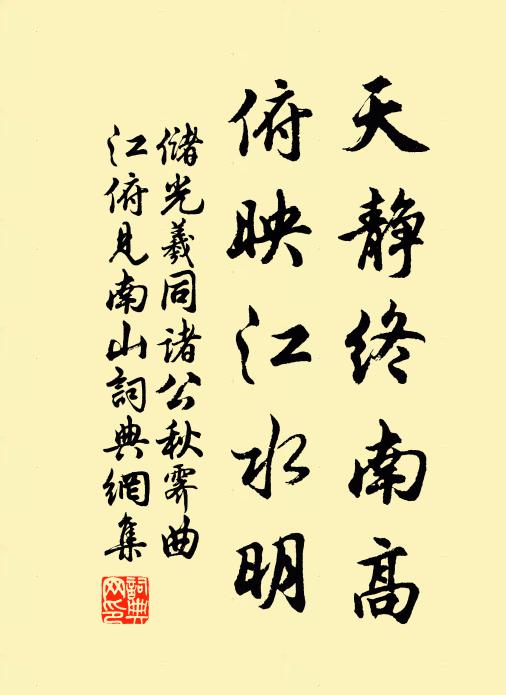 天静终南高
俯映江水明
儲光羲同诸公秋霁曲
江俯见南山詞典網集
詞典
网印